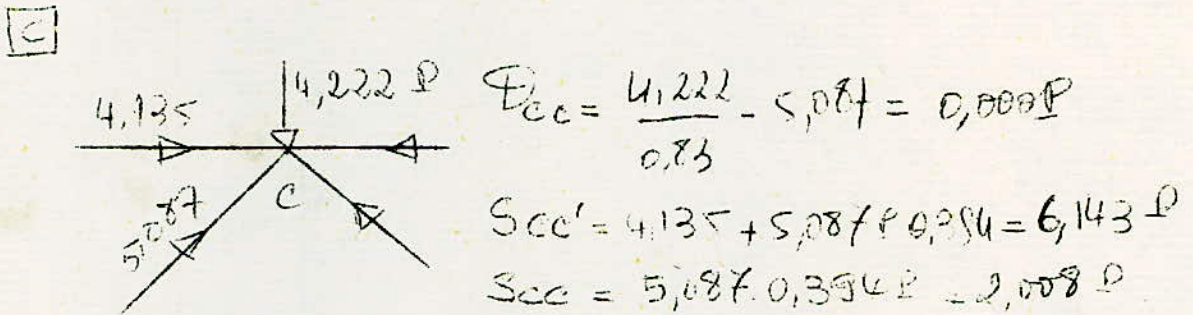 C
4,135
4,222 P
5,087
C
Dcc = 4,222 / 0,83 - 5,087 = 0,000P
Scc' = 4,135 + 5,087 P 0,394 = 6,143 P
Scc = 5,087.0,394P = 2,008 P